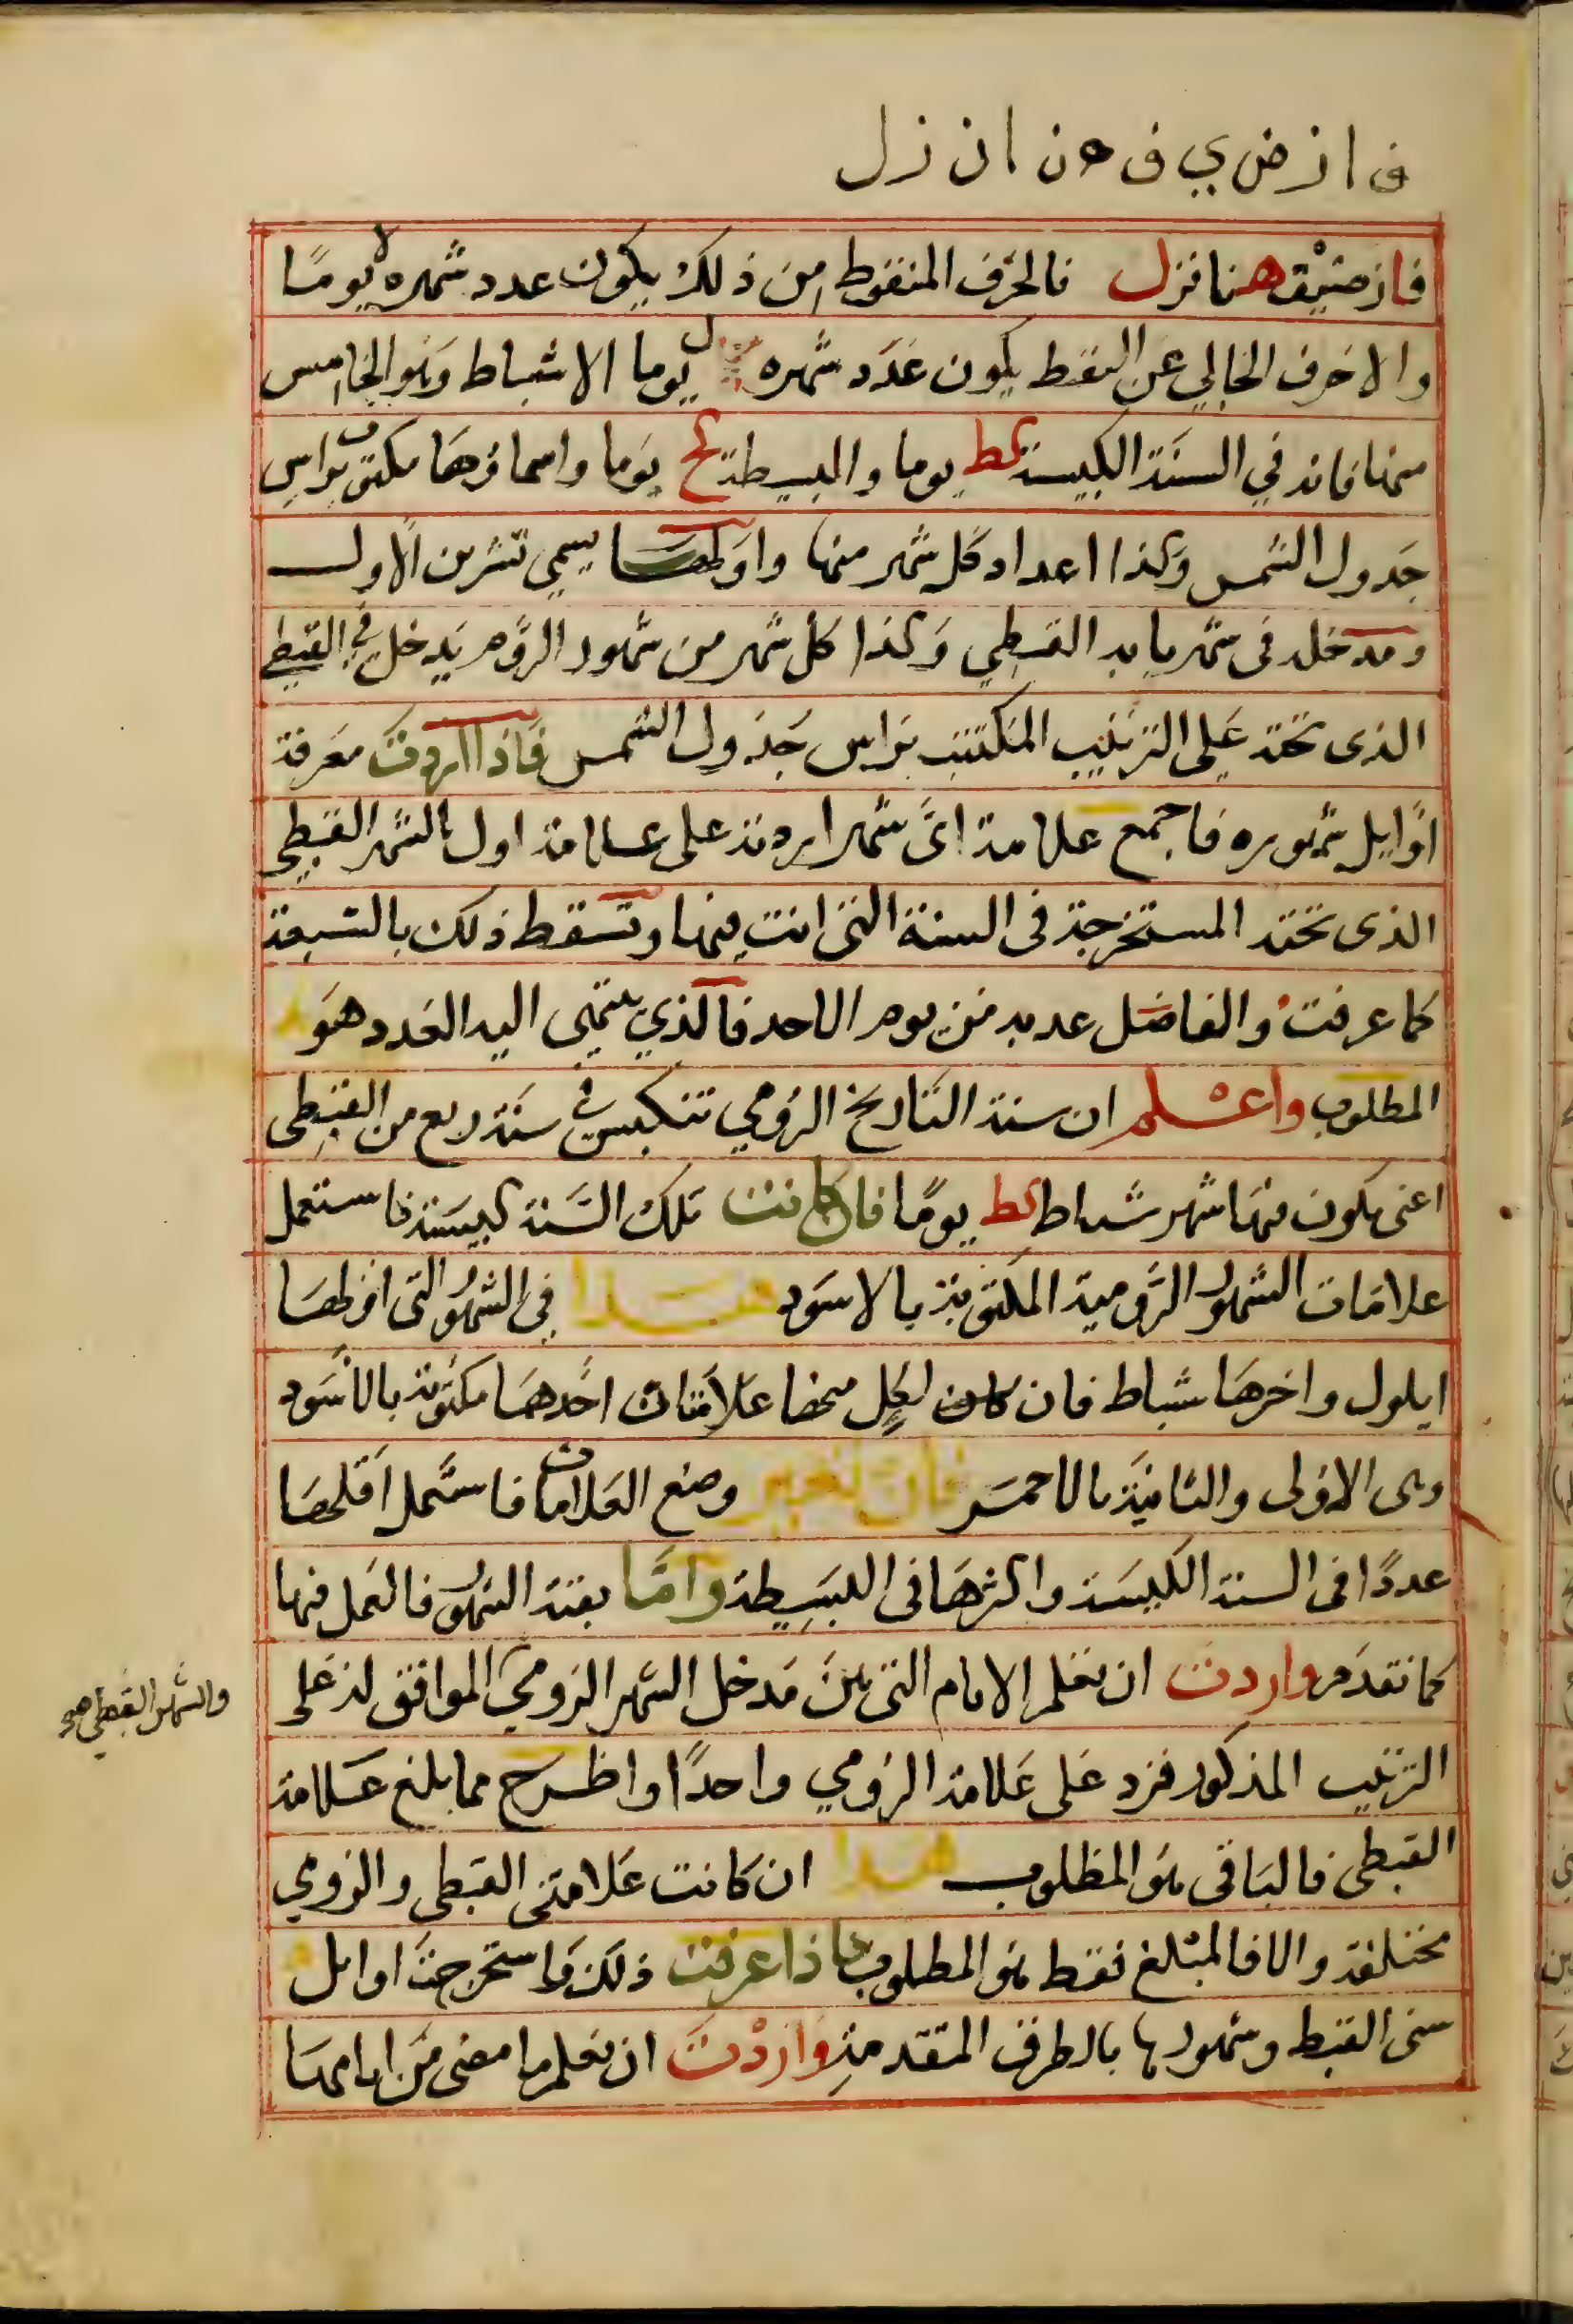 ف ا ز ض ي ق ه ن ا ن ز ل
فاز ضيق هنا نزل فالحرف المنقوط من ذلك يكون عدد شهره لا يومًا
والاحرف الخالي عن النقط يكون عدد شهره ل يوما الا شباط وهو الخامس
منها فانه في السنة الكبيسة كط يوما والبسيطة كح يوما واسماؤها مكتوب براس
جدول الشمس وكذا اعداد كل شهر منها واولها يسمى تشرين الاول
ومدخله فى شهر بابه القبطي وكذا كل شهر من شهور الروم يدخل في القبطي
الذى تحته على الترتيب المكتتب براس جدول الشمس فاذا اردت معرفة
اوايل شهوره فاجمع علامة اىّ شهر اردته على علامة اول الشهر القبطي
الذى تحته المستخرجة فى السنة التى انت فيها وتسقط ذلك بالسبعة
كما عرفت والفاضل عد به من يوم الاحد فالذي ينتهى اليه العدد هو
المطلوب واعلم ان سنة التاريخ الرومي تنكبس في سنة ربع من القبطى
اعنى يكون فيها شهر شباط كط يومًا فان كانت تلك السنة كبيسة فاستعمل
علامات الشهور الرومية المكتوبة بالاسود هذا في الشهور التى اولها
ايلول واخرها شباط فان كان لكل منها علامتان احدهما مكتوبة بالاسود
وهى الاولى والثانية بالاحمر فان تغير وضع العلامات فاستعمل اقلها
عددًا فى السنة الكبيسة واكثرها فى البسيطة وامّا بقية الشهور فالعمل فيها
كما تقدم واردت ان تعلم الايام التى بين مدخل الشهر الرومي الموافق له على
والشهر القبطي صح
الترتيب المذكور فزد على علامة الرومي واحدًا واطرح مما بلغ علامة
القبطى فالباقى هو المطلوب هذا ان كانت علامتى القبطى والرومي
مختلفة والا فالمبلغ فقط هو المطلوب فاذا عرفت ذلك واستخرجت اوايل
سنى القبط وشهورها بالطرق المتقدمة واردت ان تعلم ما مضى من ايامها